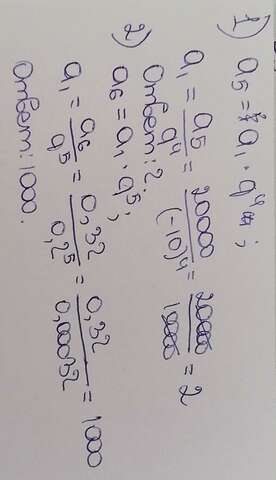 1) a₅ = a₁ · q⁴;
a₁ = a₅/q⁴ = 20000/(-10)⁴ = 20000/10000 = 2
Ответ: 2.
2) a₆ = a₁ · q⁵;
a₁ = a₆/q⁵ = 0,32/0,2⁵ = 0,32/0,00032 = 1000
Ответ: 1000.